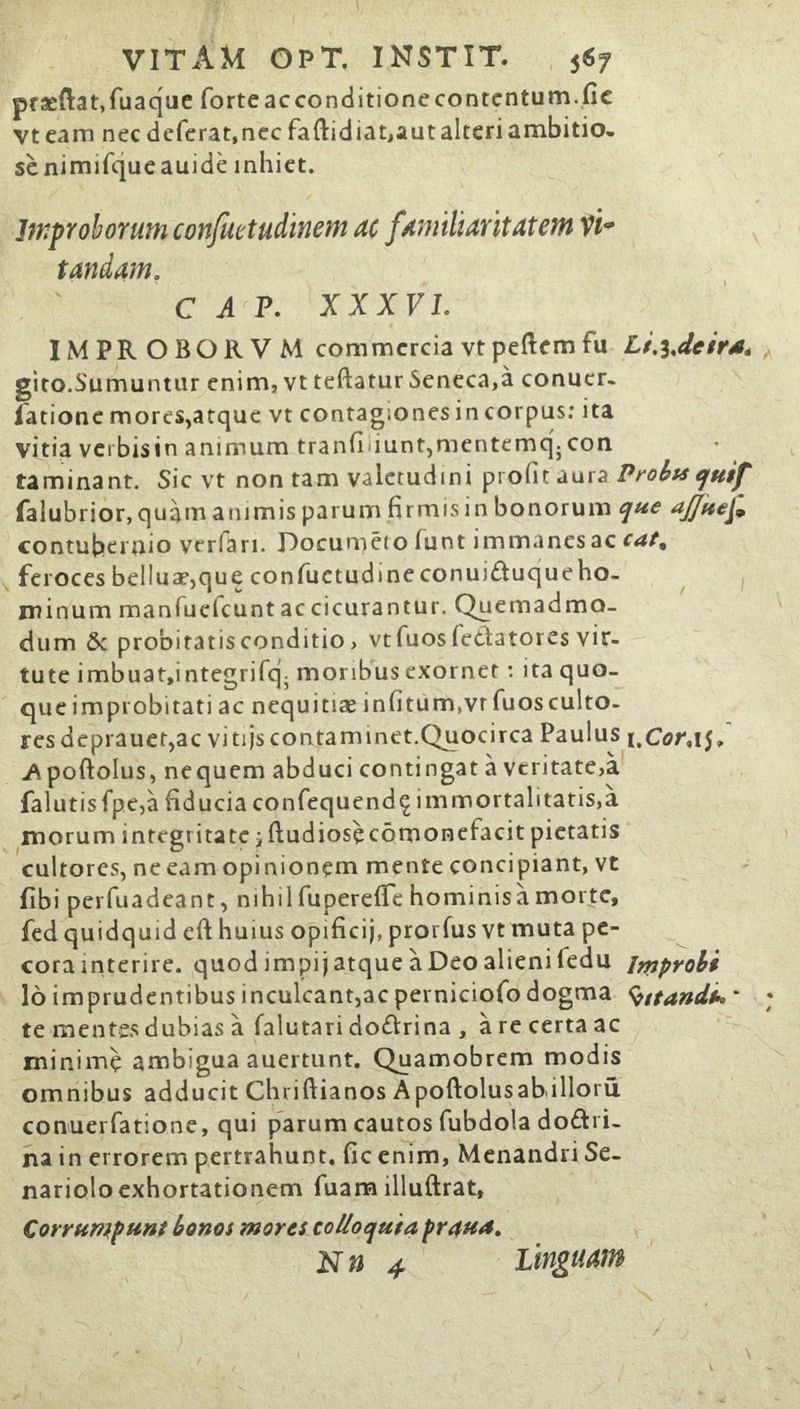 VITAM OPT. INSTIT. 567
præſtat, ſuaque ſorte ac conditione contentum. ſic
vt eam nec deſerat, nec faſtidiat, aut alteri ambitio-
sè nimiſque auidè inhiet.
Improborum conſuetudinem ac familiaritatem vi-
tandam.
CAP. XXXVI.
IMPROBORVM commercia vt peſtem fu Li.3.de ira.
gito. Sumuntur enim, vt teſtatur Seneca, à conuer-
ſatione mores, atque vt contagiones in corpus: ita
vitia verbis in animum tranſiliunt, mentemq; con
taminant. Sic vt non tam valetudini proſit aura Probus quiſ
ſalubrior, quàm animis parum firmis in bonorum que aſſueſ.
contubernio verſari. Documēto ſunt immanes ac cat.
feroces belluæ, quę conſuetudine conuictuque ho-
minum manſueſcunt ac cicurantur. Quemadmo-
dum & probitatis conditio, vt ſuos ſectatores vir-
tute imbuat, integriſq; moribus exornet: ita quo-
que improbitati ac nequitiæ inſitum, vt ſuos culto-
res deprauet, ac vitijs contaminet. Quocirca Paulus 1. Cor. 15.
Apoſtolus, ne quem abduci contingat à veritate, à
ſalutis ſpe, à fiducia conſequendę immortalitatis, à
morum integritate; ſtudiosè cōmonefacit pietatis
cultores, ne eam opinionem mente concipiant, vt
ſibi perſuadeant, nihil ſupereſſe hominis à morte,
ſed quidquid eſt huius opificij, prorſus vt muta pe-
cora interire. quod impij atque à Deo alieni ſedu Improbi
lò imprudentibus inculcant, ac pernicioſo dogma vitandi.
te mentes dubias à ſalutari doctrina, à re certa ac
minimè ambigua auertunt. Quamobrem modis
omnibus adducit Chriſtianos Apoſtolus ab illorū
conuerſatione, qui parum cautos ſubdola doctri-
na in errorem pertrahunt. ſic enim, Menandri Se-
nariolo exhortationem ſuam illuſtrat,
Corrumpunt bonos mores colloquia praua.
Nn 4 Linguam